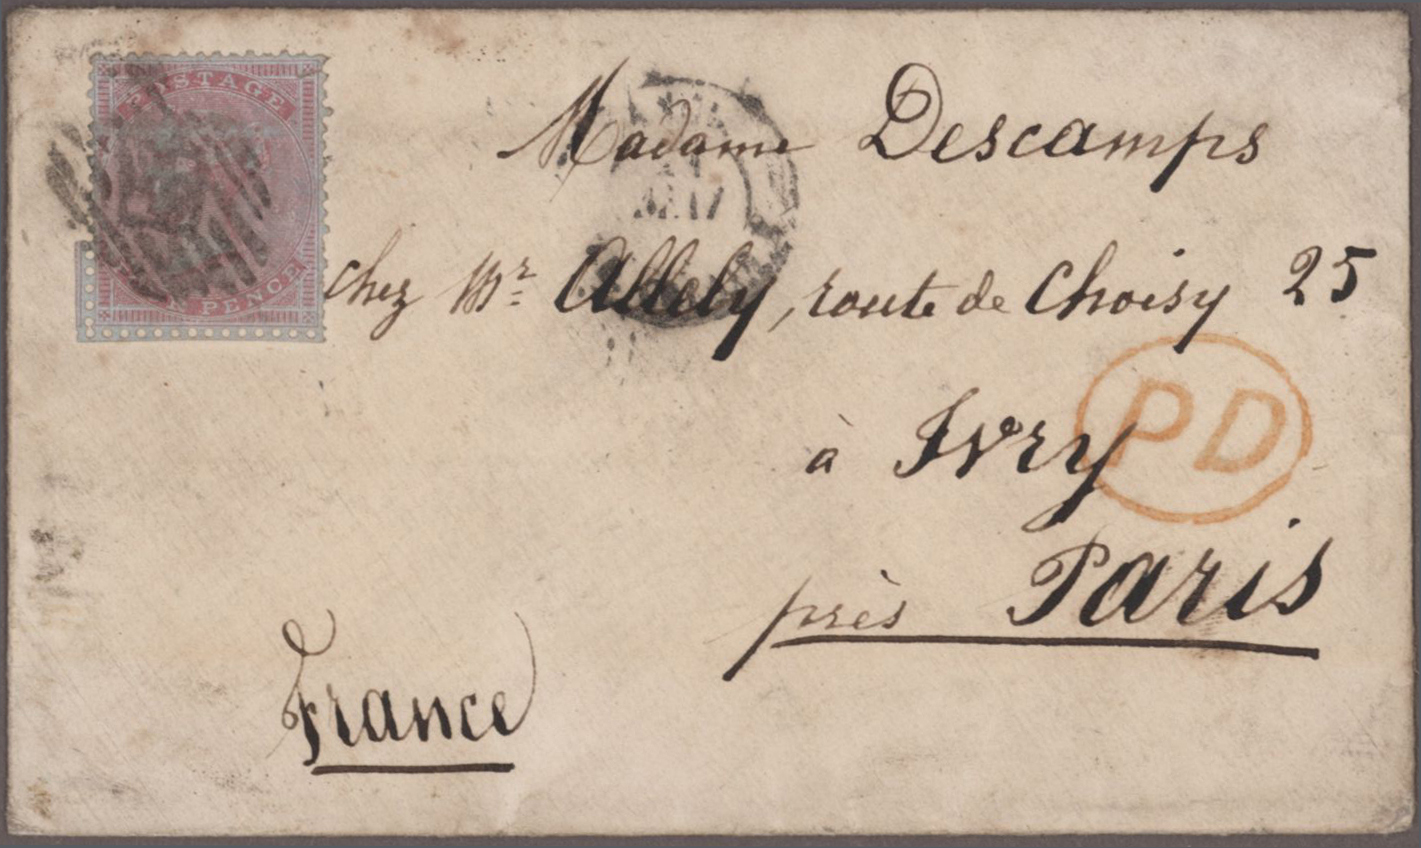 POSTAGE
PENCE
Madame Descamps
chez Mr Allely, route de Choisy 25
à Ivry
PD
près Paris
France